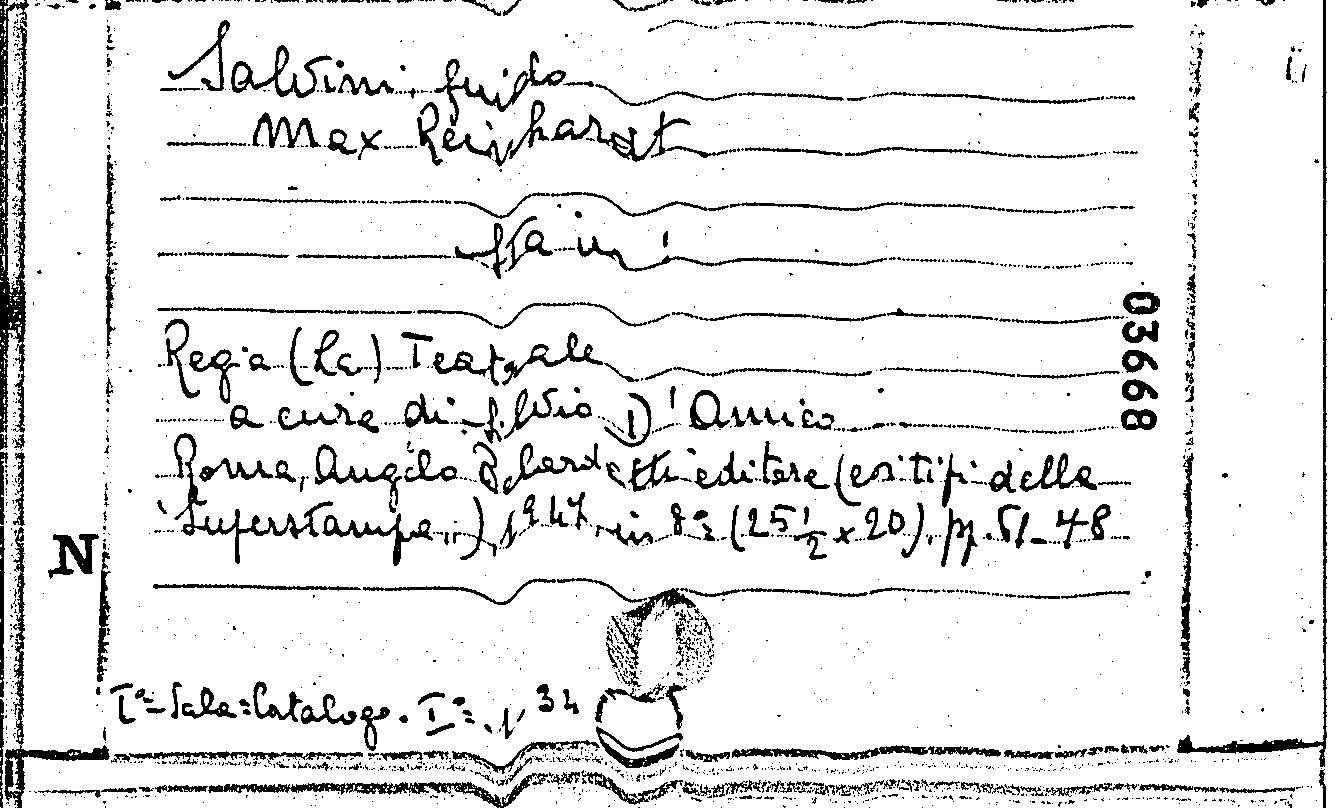 Salvini, Guido
Max Reinhardt
sta in:
Regia (La) Teatrale
a cura di Silvio D'Amico
Roma, Angelo Belardetti editore (coi tipi della
"Superstampa,,) 1947, in 8º (25 1/2 x 20). pp. 
03668
N
Iª= Sala= Catalogo. Iº= 1, 34